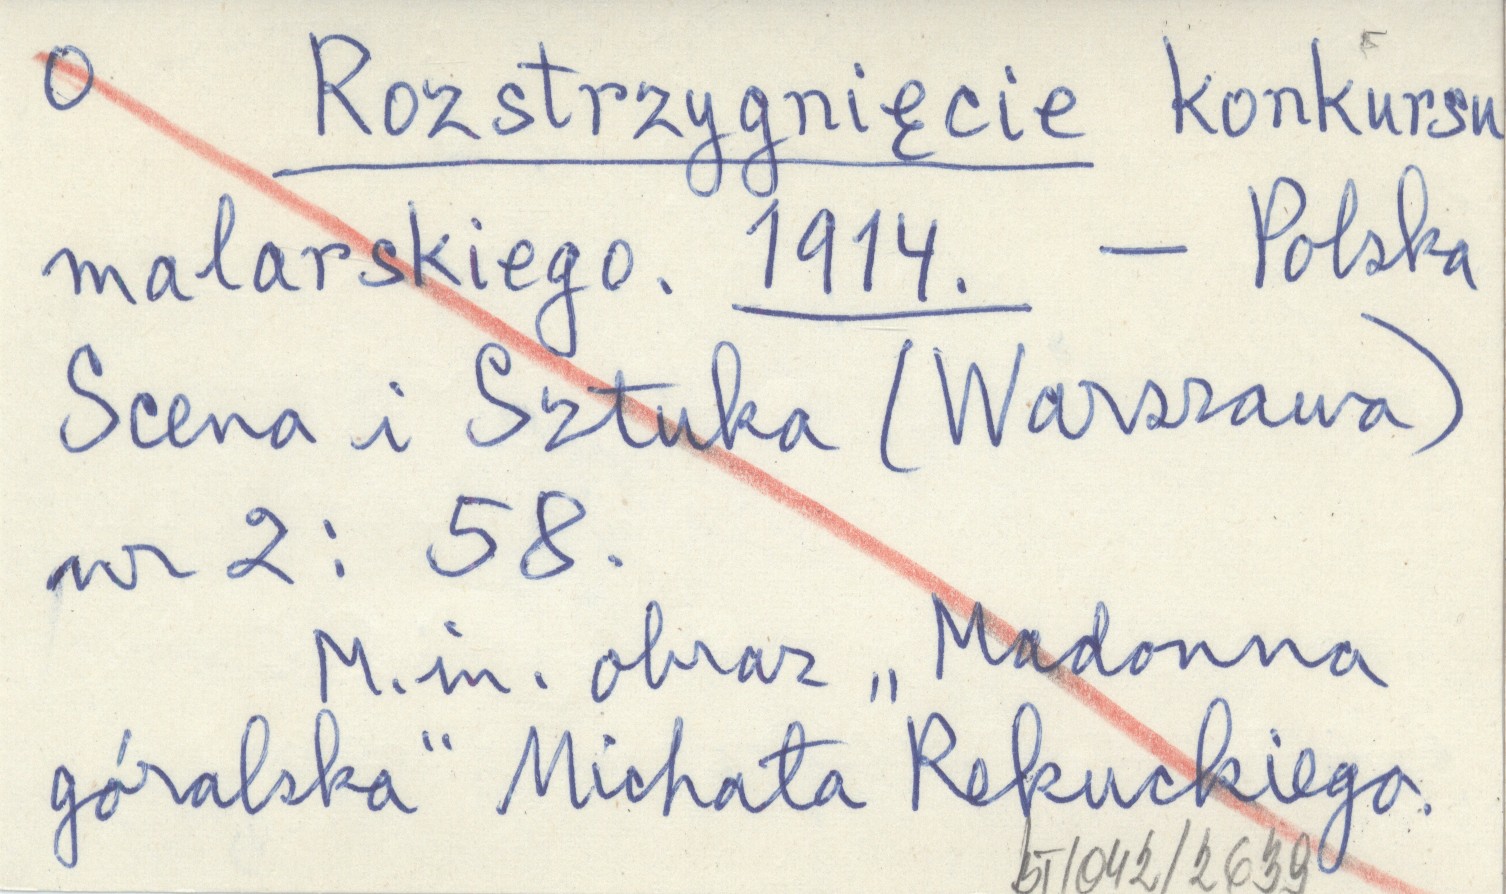 O Rozstrzygnięcie konkursu
malarskiego. 1914. — Polska
Scena i Sztuka (Warszawa)
nr 2: 58.
M. in. obraz „Madonna
góralska“ Michała Rekuckiego.
/042/2639